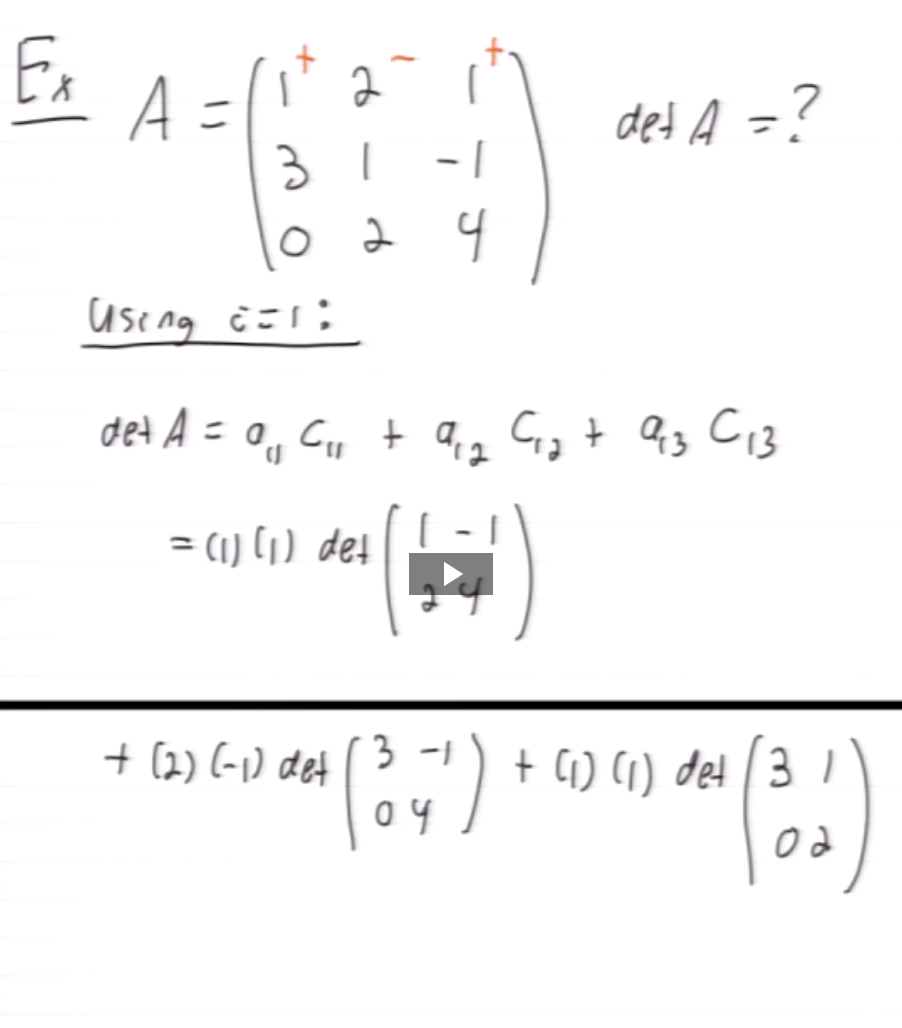 Ex A = (1⁺ 2⁻ 1⁺ det A = ?
3 1 -1
0 2 4)
Using i=1:
det A = a₁₁ C₁₁ + a₁₂ C₁₂ + a₁₃ C₁₃
= (1)(1) det (1 -1
2 4)
+ (2)(-1) det (3 -1 + (1)(1) det (3 1
0 4) 0 2)